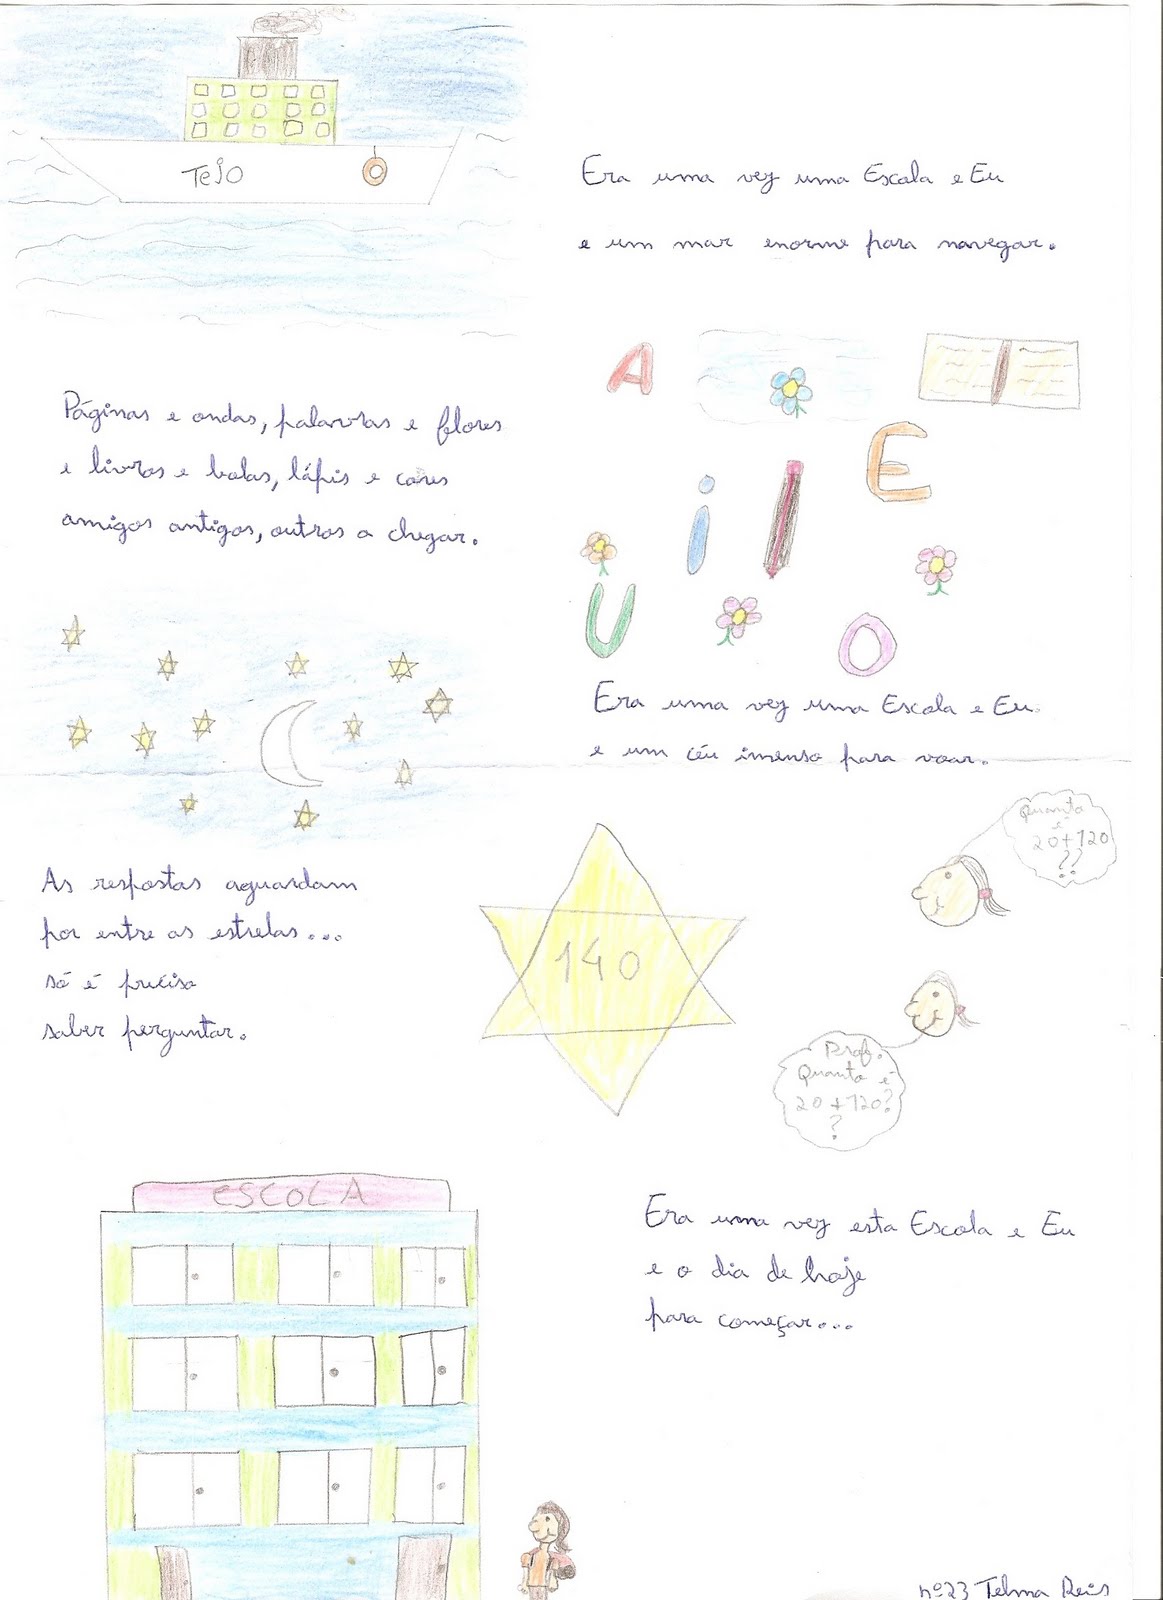 Tejo
Era uma vez uma Escola e Eu
e um mar enorme para navegar.
A
E
i
U
O
Páginas e ondas, palavras e flores
e livros e bolas, lápis e cores
amigos antigos, outros a chegar.
Era uma vez uma Escola e Eu
e um céu imenso para voar.
Quanto
é
20+120
??
As respostas aguardam
por entre as estrelas...
só é preciso
saber perguntar.
140
Prof.
Quanto é
20+120?
?
ESCOLA
Era uma vez esta Escola e Eu
e o dia de hoje
para começar...
nº23 Telma Reis